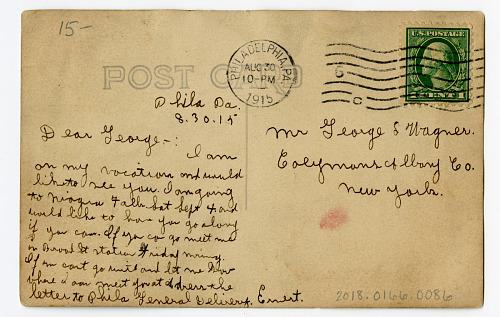 15-
POST CARD
PHILADELPHIA, PA.
AUG 30
10-PM
1915
6
C
U.S. POSTAGE
Phila Pa.
8.30.15
Dear George-:
I am
on my vacation and would
like to see you. I am going
to Niagra Falls Sat Sept 4 and
would like to have you go along
if you can. If you can go meet me
in Broad St station Friday
If you can't go write and let me know
where I can meet you at address the
letter to Phila General Delivery. Ernest.
Mr George S Wagner.
Coeymans Albany Co.
New York.
2018.0166.0086